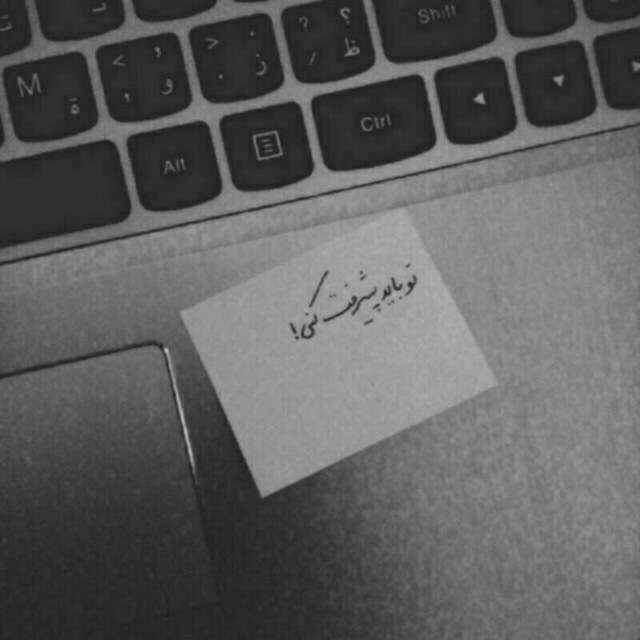 Shift
M
ة
<
,
و
>
.
ز
?
؟
/
ظ
Alt
Ctrl
تو باید پیشرفت کنی!